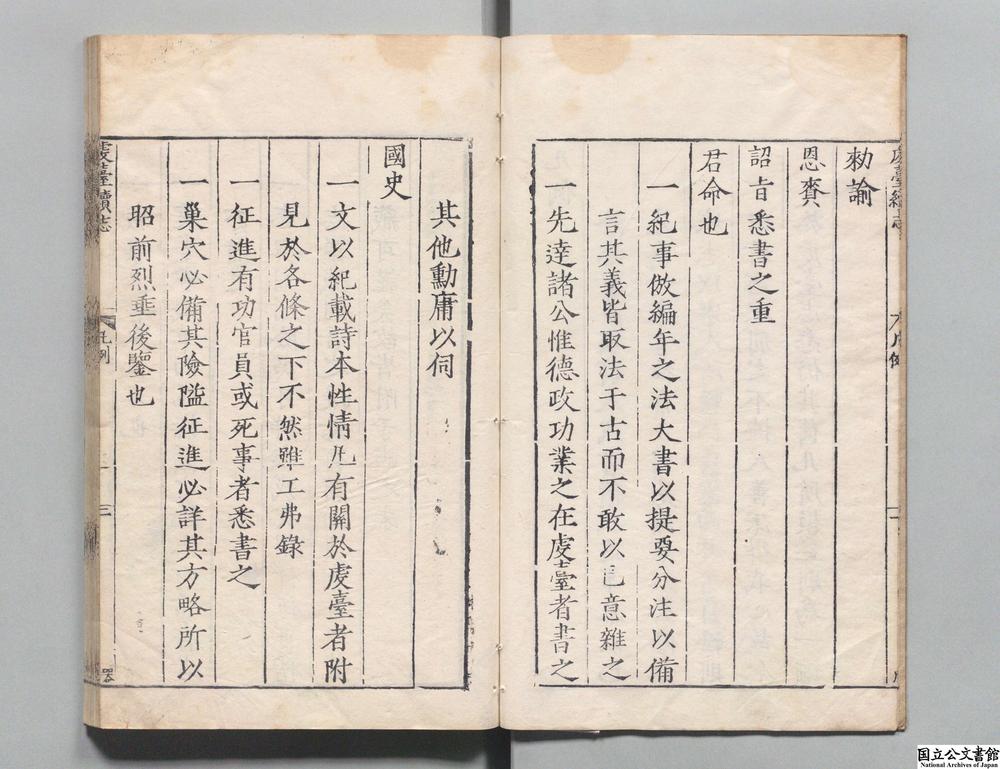 勅諭
恩賚
詔旨悉書之重
君命也
一紀事倣編年之法大書以提要分注以備
言其義皆取法于古而不敢以己意雜之
一先達諸公惟德政功業之在虔臺者書之
其他勳庸以伺
國史
一文以紀載詩本性情凢有關於虔臺者附
見於各條之下不然雖工弗錄
一征進有功官員或死事者悉書之
一巢穴必備其險隘征進必詳其方略所以
昭前烈垂後鑒也
虔臺續志
凢例
三
国立公文書館
National Archives of Japan